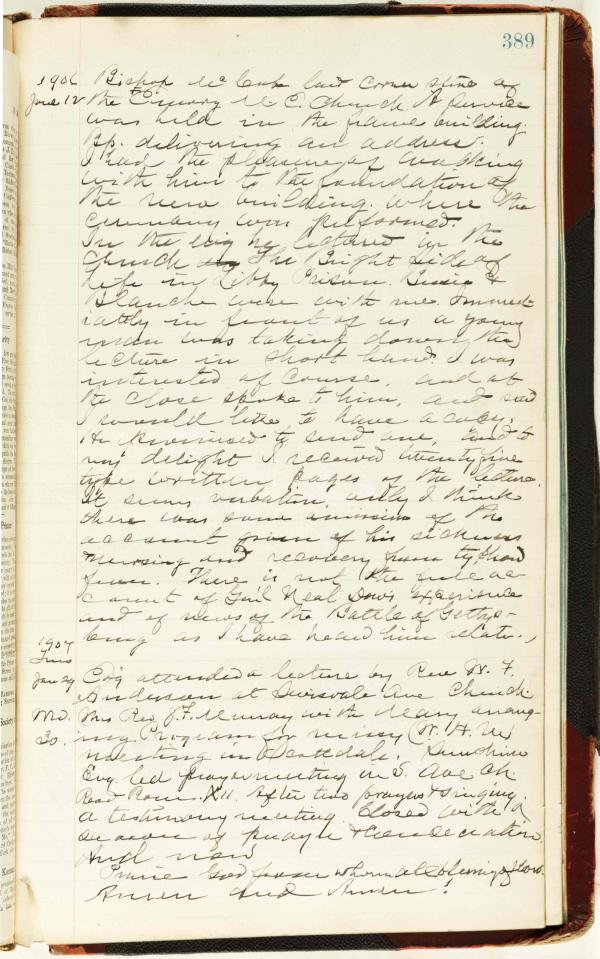 389
1906 Bishop McCabe laid corner stone of
June 12 the Emory M. E. Church. A service
was held in the frame building.
Bp. delivering an address.
I had the pleasure of walking
with him to the foundation of
the new building where the
ceremony was performed.
In the evig he lectured in the
Church The Bright Side of
Life in Libby Prison. Bessie &
Blanche were with me. Immed-
iately in front of us a young
man was taking down the
lecture in short hand. I was
interested of course, and at
the close spoke to him, and said
I would like to have a copy.
He promised to send one, and to
my delight I received twenty five
type written pages of the lecture.
It seems verbatim, only I think
there was some omission of the
account given of his sickness
nursing and recovery from typhoid
fever. There is not the full ac-
count of Genl Neal Dow's experience
and of news of the Battle of Gettys-
burg as I have heard him relate.
1907
Tues
Jan 29 Evg attended a lecture by Rev W. F.
Anderson at Ave Church
Wed. Mrs Rev. J. F. Murray with Mary arrang-
30. ing Program for missy (W. H. M)
meeting in Scottdale.
Evg. led prayermeeting in S. Ave Ch.
Read Rom. XII. After two prayers & singing
a testimony meeting. Closed with a
season of prayer & consecration.
And now
Praise God from whom all blessings flow.
Amen and Amen!